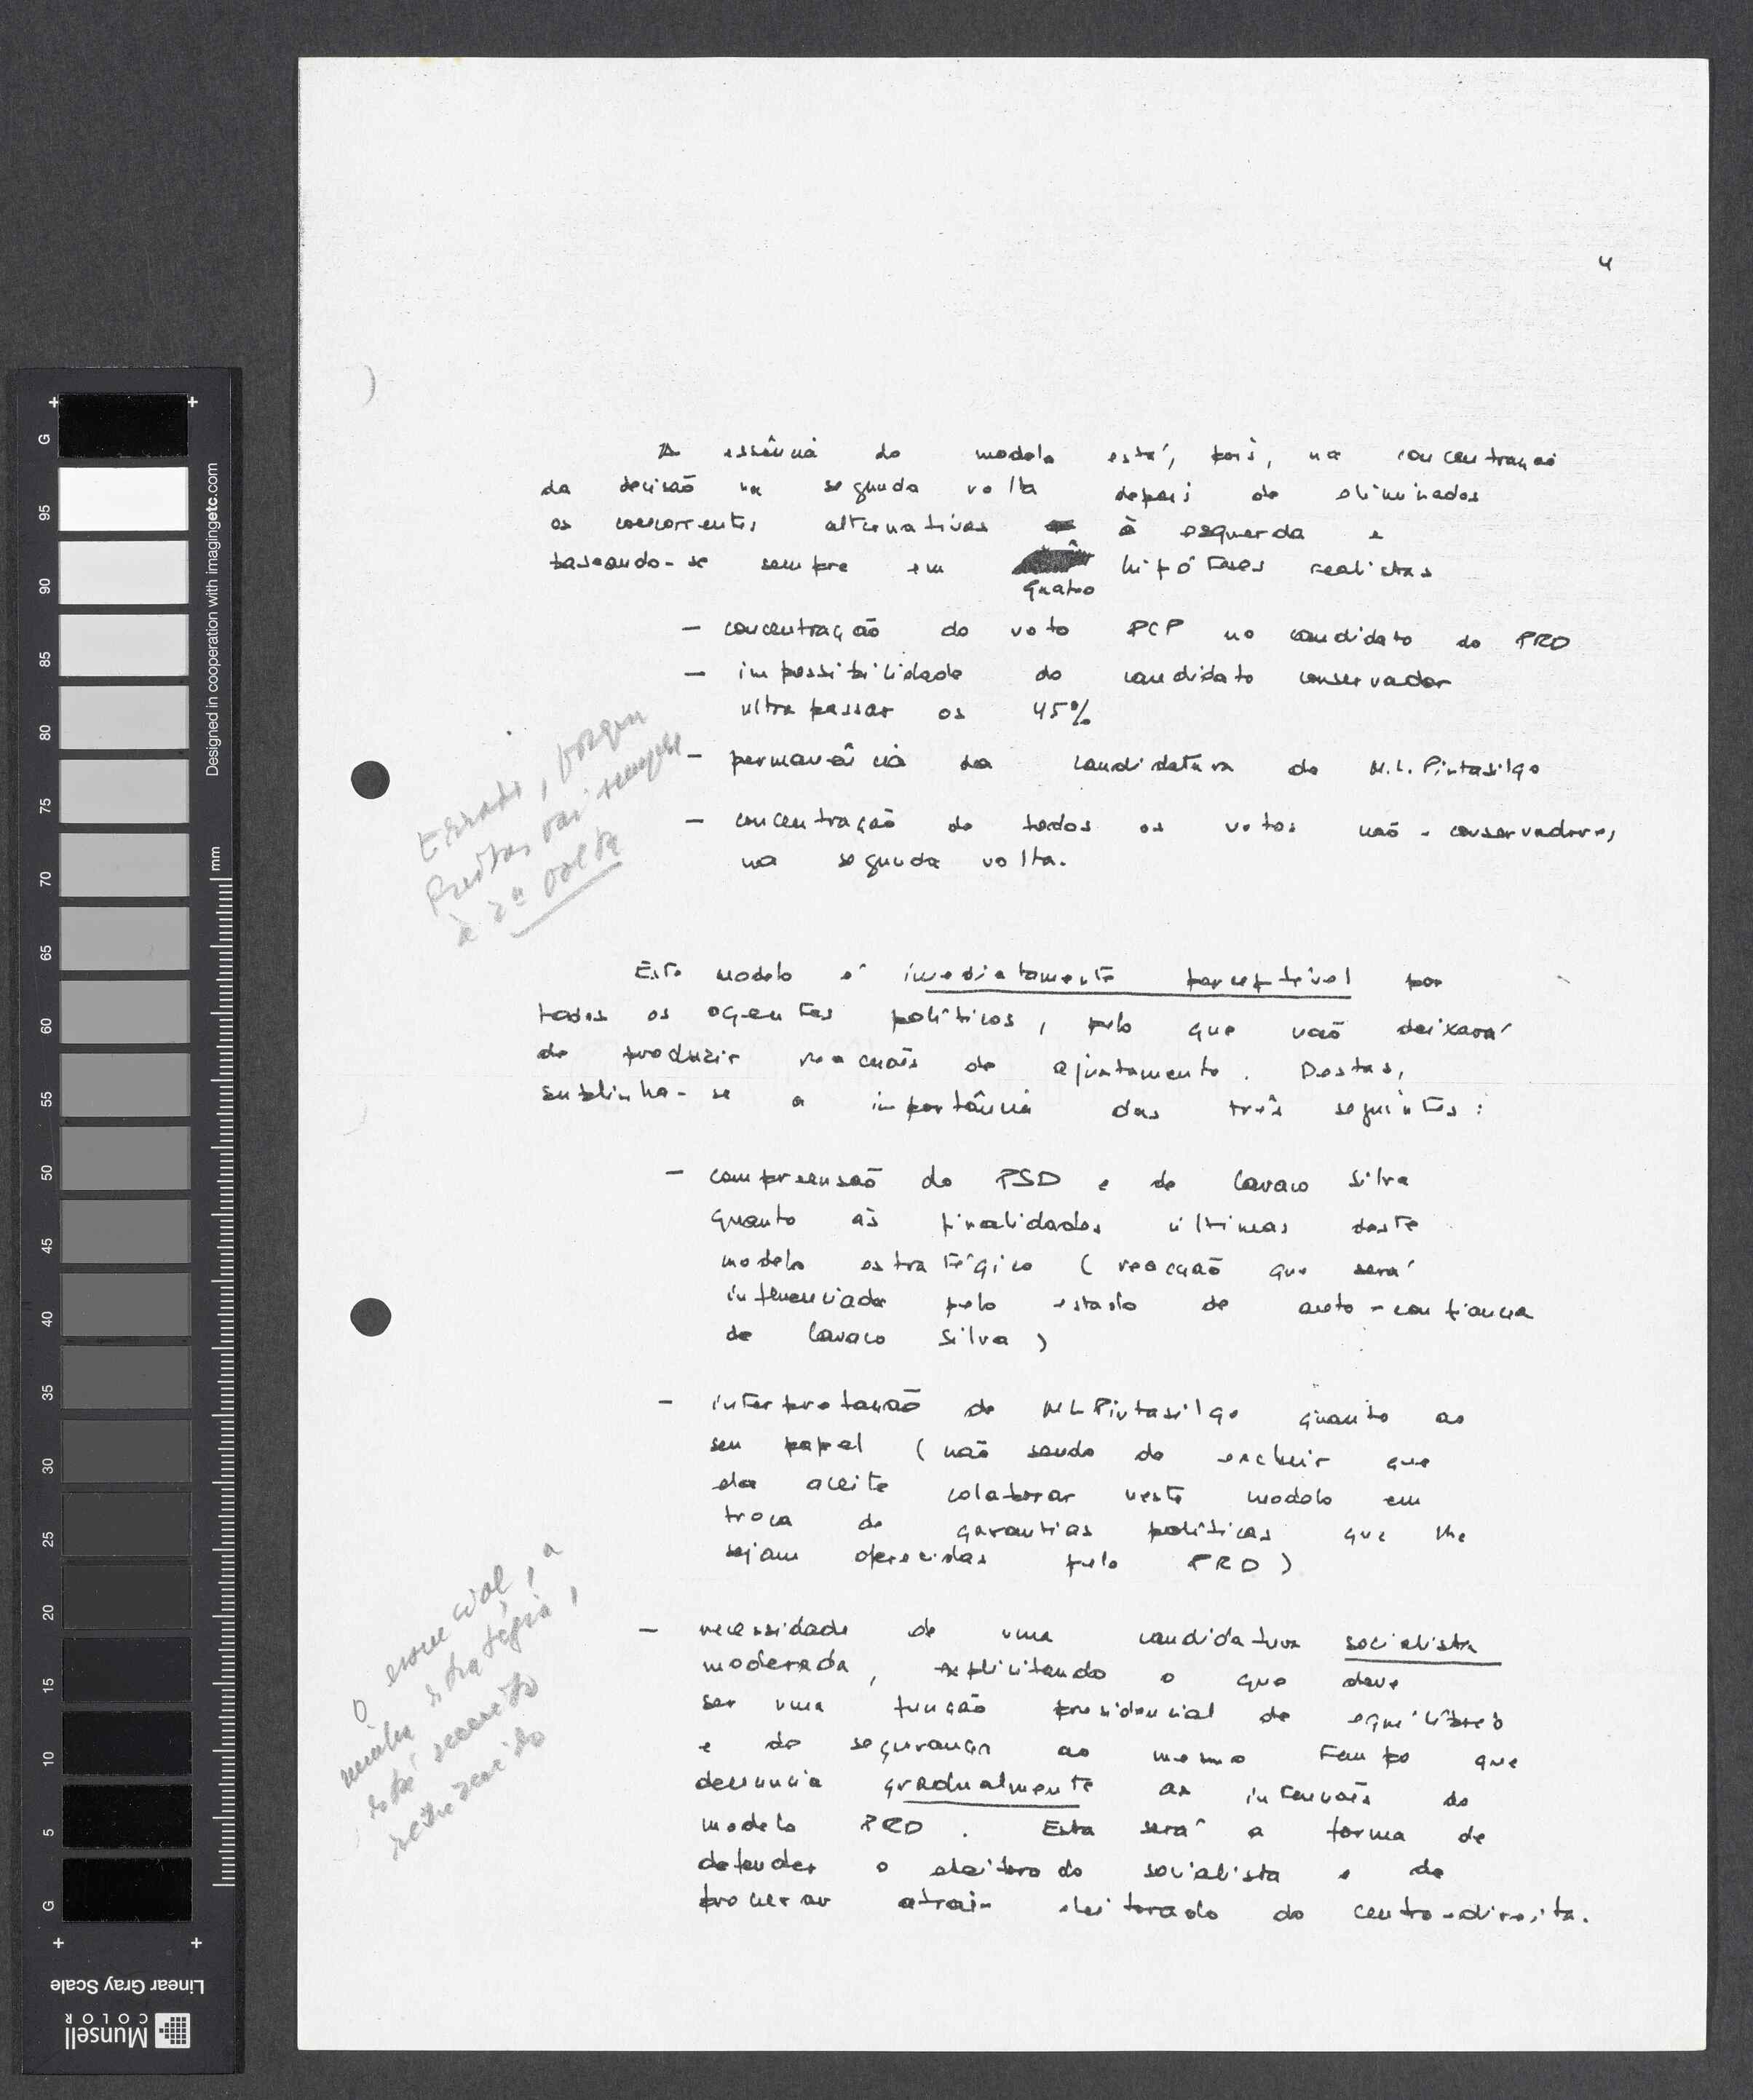 4
A essência do modelo está, pois, na concentração
da decisão na segunda volta depois de eliminados
os concorrentes alternativos à esquerda e
baseando-se sempre em quatro hipóteses realistas
– concentração do voto PCP no candidato do PRD
– impossibilidade do candidato conservador
ultrapassar os 45%
– permanência da candidatura de M.L. Pintasilgo
– concentração de todos os votos não-conservadores,
na segunda volta.
Errado, porque
Freitas vai sempre
à 2ª volta
Este modelo é imediatamente perceptível por
todos os agentes políticos, pelo que não deixará
de produzir reacções de ajustamento. Destas,
sublinha-se a importância das três seguintes:
– compreensão do PSD e de Cavaco Silva
quanto às finalidades últimas deste
modelo estratégico (reacção que será
influenciada pelo estado de auto-confiança
de Cavaco Silva)
– interpretação de ML Pintasilgo quanto ao
seu papel (não sendo de excluir que
ela aceite colaborar neste modelo em
troca de garantias políticas que lhe
sejam oferecidas pelo PRD)
– necessidade de uma candidatura socialista
moderada, explicitando o que deve
ser uma função presidencial de equilíbrio
e de segurança ao mesmo tempo que
denuncia gradualmente as intenções do
modelo PRD. Esta será a forma de
defender o eleitorado socialista e de
procurar atrair eleitorado do centro-direita.
O essencial, a
minha estratégia,
está
Munsell
COLOR
Linear Gray Scale
Designed in cooperation with imagingetc.com
mm
G
95
90
85
80
75
70
65
60
55
50
45
40
35
30
25
20
15
10
5
G